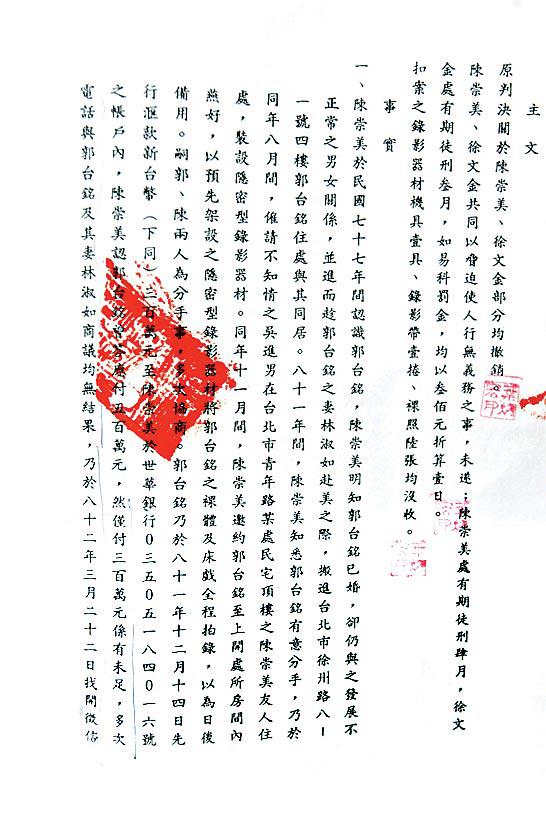 主文
原判決關於陳崇美、徐文金部分均撤銷。
陳崇美、徐文金共同以脅迫使人行無義務之事，未遂；陳崇美處有期徒刑肆月，徐文
金處有期徒刑叁月，如易科罰金，均以叁佰元折算壹日。
扣案之錄影器材機具壹具、錄影帶壹捲、裸照陸張均沒收。
事實
一、陳崇美於民國七十七年間認識郭台銘，陳崇美明知郭台銘已婚，卻仍與之發展不
正常之男女關係，並進而趁郭台銘之妻林淑如赴美之際，搬進台北市徐州路八一
一號四樓郭台銘住處與其同居。八十一年間，陳崇美知悉郭台銘有意分手，乃於
同年八月間，僱請不知情之吳進男在台北市青年路某處民宅頂樓之陳崇美友人住
處，裝設隱密型錄影器材。同年十一月間，陳崇美邀約郭台銘至上開處所房間內
燕好，以預先架設之隱密型錄影器材將郭台銘之裸體及床戲全程拍錄，以為日後
備用。嗣郭、陳兩人為分手事，多次協商。郭台銘乃於八十一年十二月十四日先
行滙款新台幣（下同）三百萬元至陳崇美於世華銀行０三五０五一八四０一六號
之帳戶內，陳崇美認郭台銘曾答應付五百萬元，然僅付三百萬元係有未足，多次
電話與郭台銘及其妻林淑如商議均無結果，乃於八十二年三月二十二日找開徵信